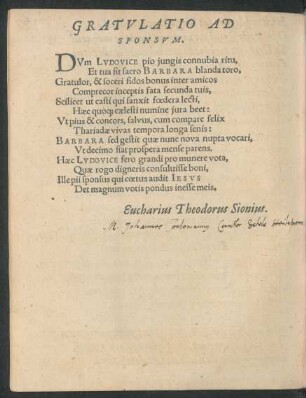 GRATVLATIO AD
SPONSVM.
DVm LVDOVICE pio jungis connubia ritu,
Et tua fit sacro BARBARA blanda toro,
Gratulor, & soceri fidos bonus inter amicos
Comprecor inceptis fata secunda tuis,
Scilicet ut casti qui sanxit fœdera lecti,
Hæc quoq; cælesti numine jura beet:
Vt pius & concors, salvus, cum compare felix
Thariadæ vivas tempora longa senis:
BARBARA sed gestit quæ nune nova nupta vocari,
Vt decimo fiat prospera mense parens.
Hæc LVDOVICE fero grandi pro munere vota,
Quæ rogo digneris consuluisse boni,
Ille pii sponsus qui cœtus audit IESVS
Det magnum votis pondus inesse meis,
Eucharius Theodorus Sionius.
M. Johannes